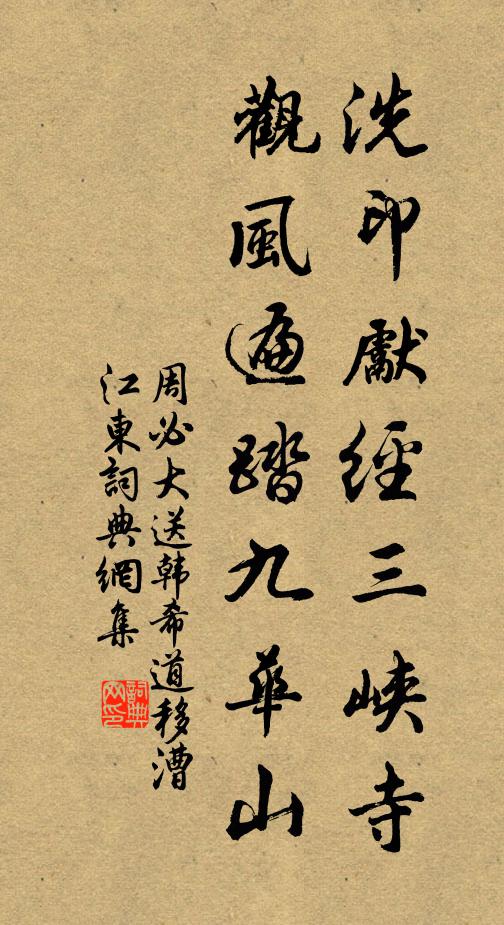 洗印獻經三峽寺
觀風遍踏九華山
周必大送韩希道移漕
江東詞典網集
詞典网印